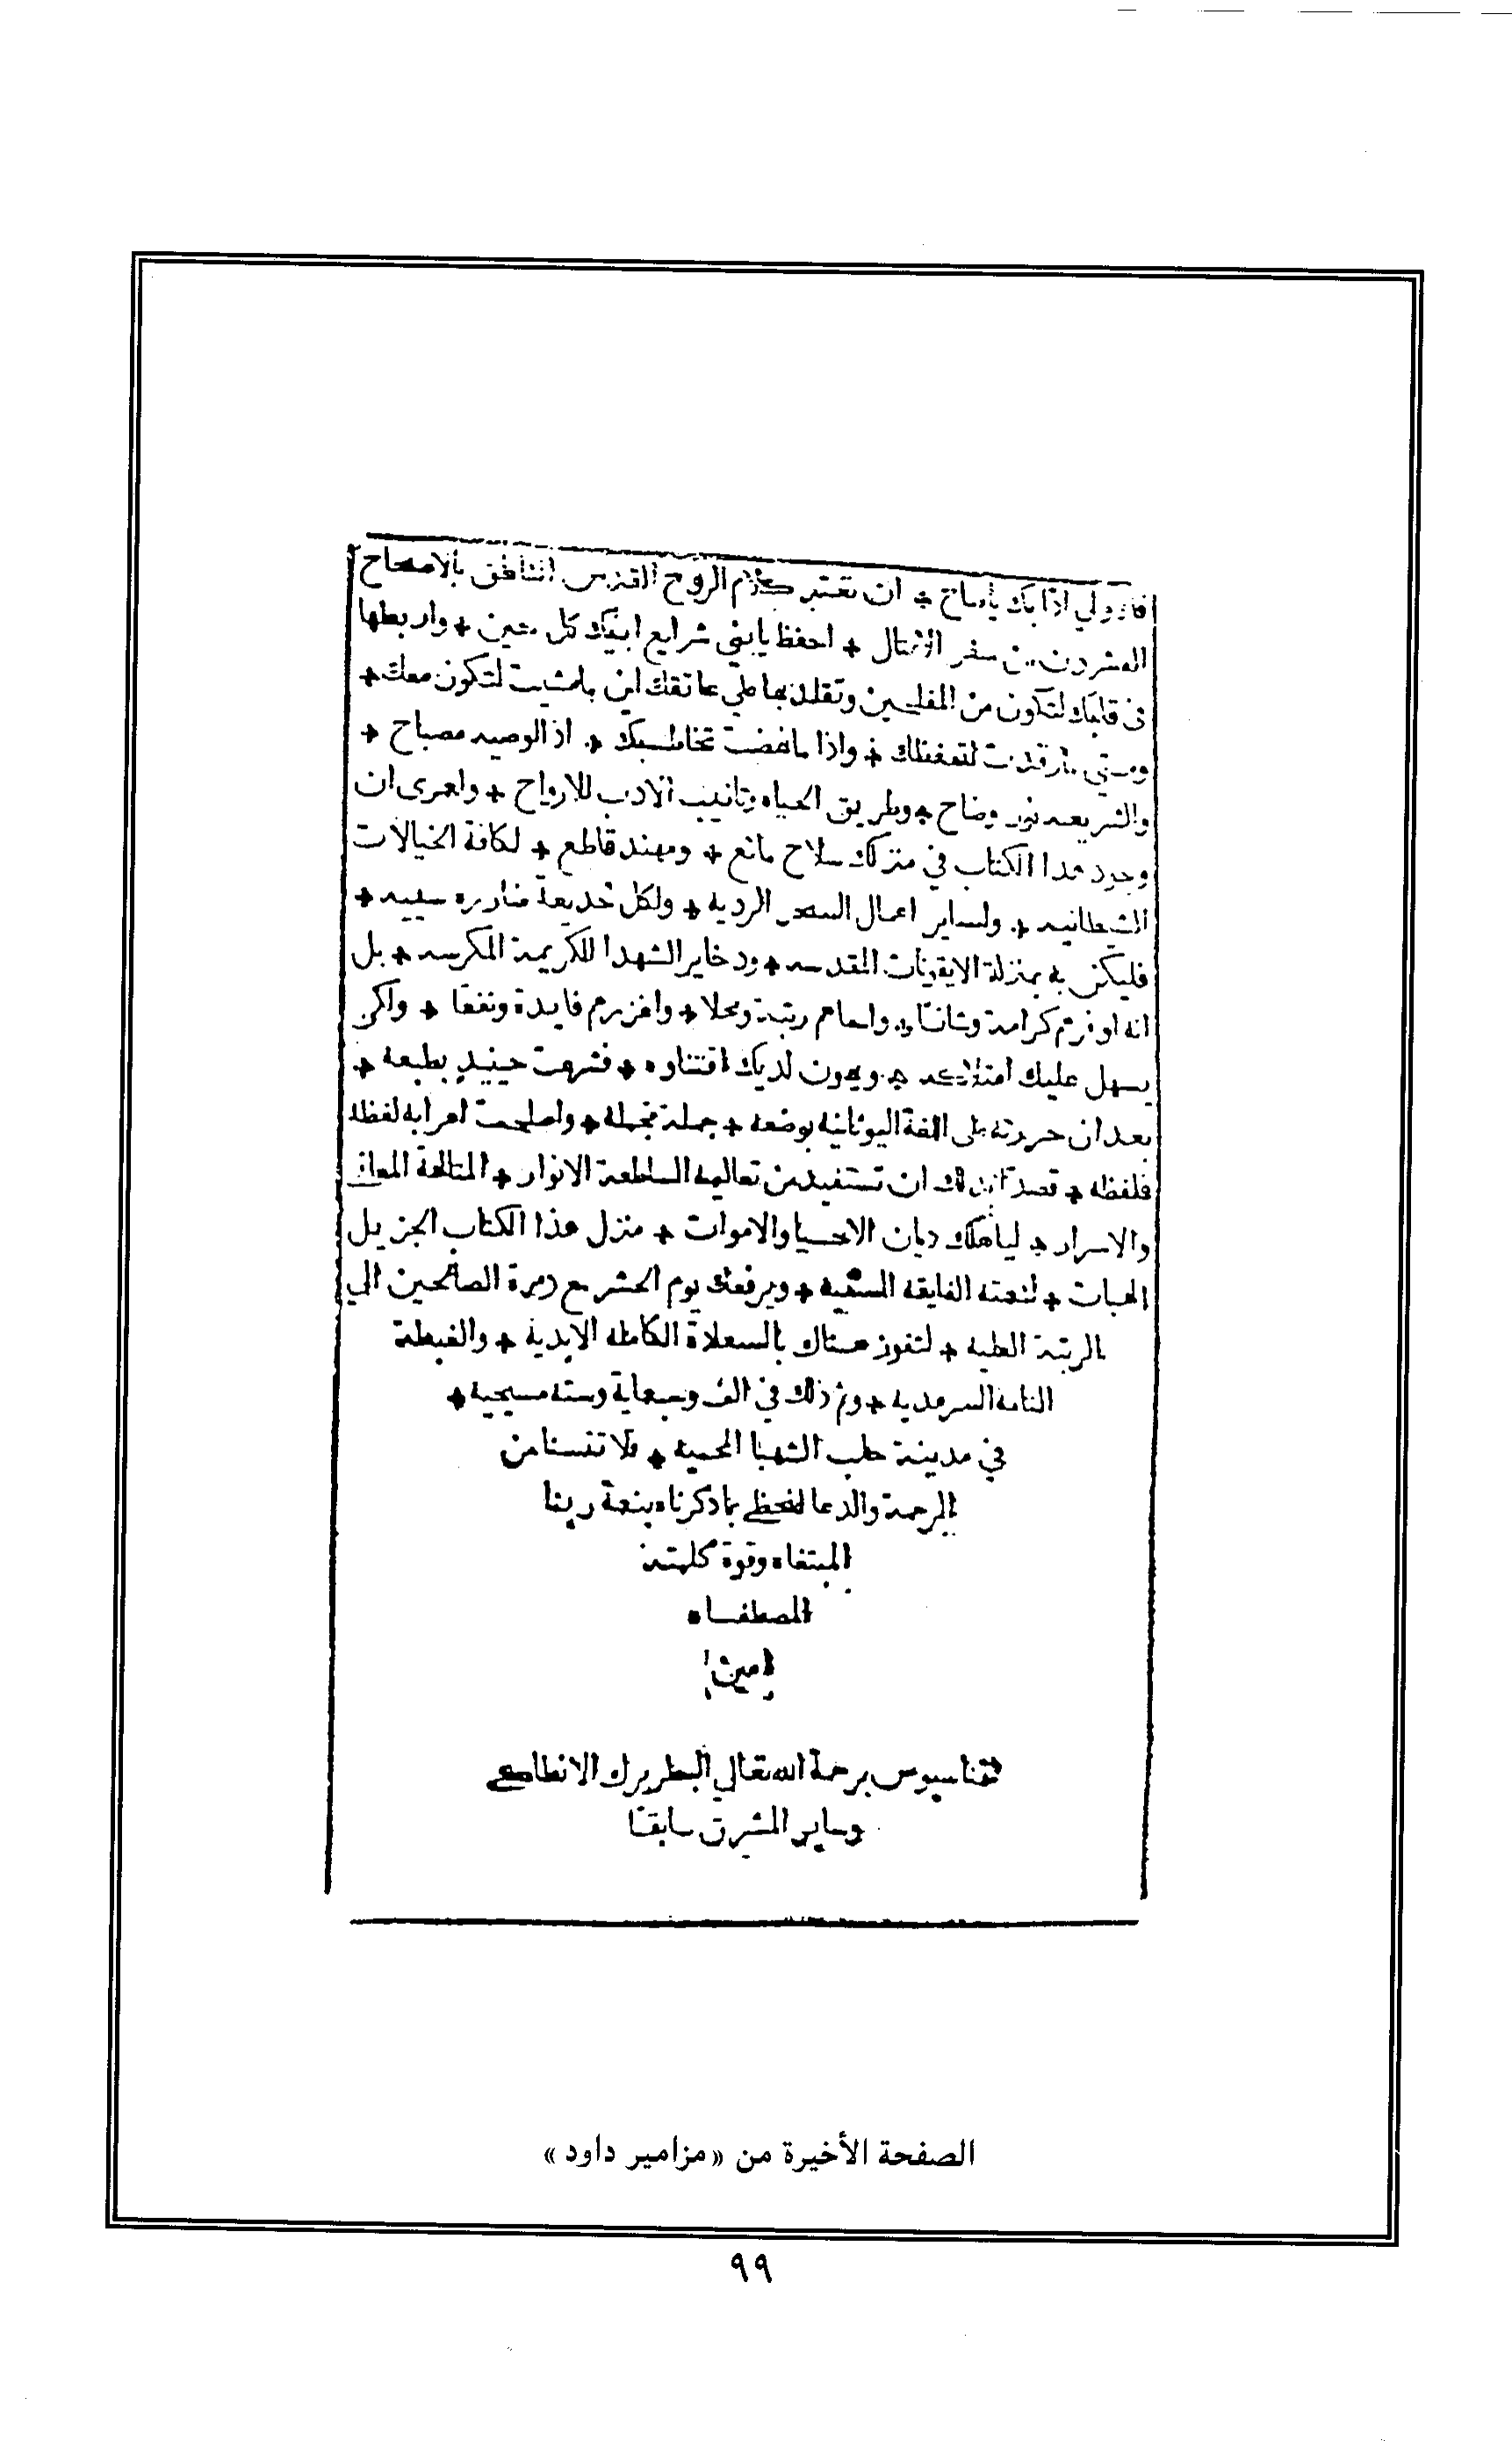 بك ياصاح + ان تعتبر كلام الروح القدس الناطق بالاصحاح
من سفر الامثال + احفظ يابني شرايع ابيك كل حين + واربطها
في قلبك لتكون من المفلحين وتقلدها علي عاتقك اين مامشيت لتكون معك +
ومتي مارقدت لتحفظك + واذا مانهضت تخاطبك + اذ الوصيه مصباح +
والشريعه نور وضاح + وطريق الحياه وتانيب الادب للارواح + ولعمري ان
وجود هذا الكتاب في منزلك سلاح مانع + ومهند قاطع + لكافة الخيالات
الشيطانيه + ولساير اعمال السحر الرديه + ولكل خديعة
فليكن بمنزلة الايقونات المقدسه + ودخاير الشهدا الكريمة المكرسه + بل
انه اوفرهم كرامة وشانا + واسماهم رتبة ومحلا + واغزرهم فايدة ونفعا + ولكي
يسهل عليك + ويهون لديك اقتناوه + فشرعت حينيدٍ بطبعه +
بعد ان حررته علي اللغة اليونانية بوضعه + جملة مجمله + واصلحت اعرابه لفظه
فلفظه + قصدًا ان تستفيد من تعاليمه الساطعة الانوار + المعاني
والاسرار + لياهلك ديان الاحيا والاموات + منزل هذا الكتاب الجزيل
الهبات + لنعمته الفايقه السنيه + ويرفعك يوم الحشر مع زمرة الصالحين الي
الرتبة العليه + لتفوز هناك بالسعادة الكامله الابدية + والغبطة
التامه السرمديه + وتم ذلك في الف وسبعماية وستة مسيحية +
في مدينة حلب الشهبا المحمية + فلا تنسنا من
الرحمة والدعا لنحظي بما ذكرناه بنعمة ربنا
المبتغاه وقوة كلمته
المصطفاه
امين
اثناسيوس برحمة الله تعالي البطريرك الانطاكي
وساير المشرق سابقًا
الصفحة الأخيرة من «مزامير داود»
٩٩